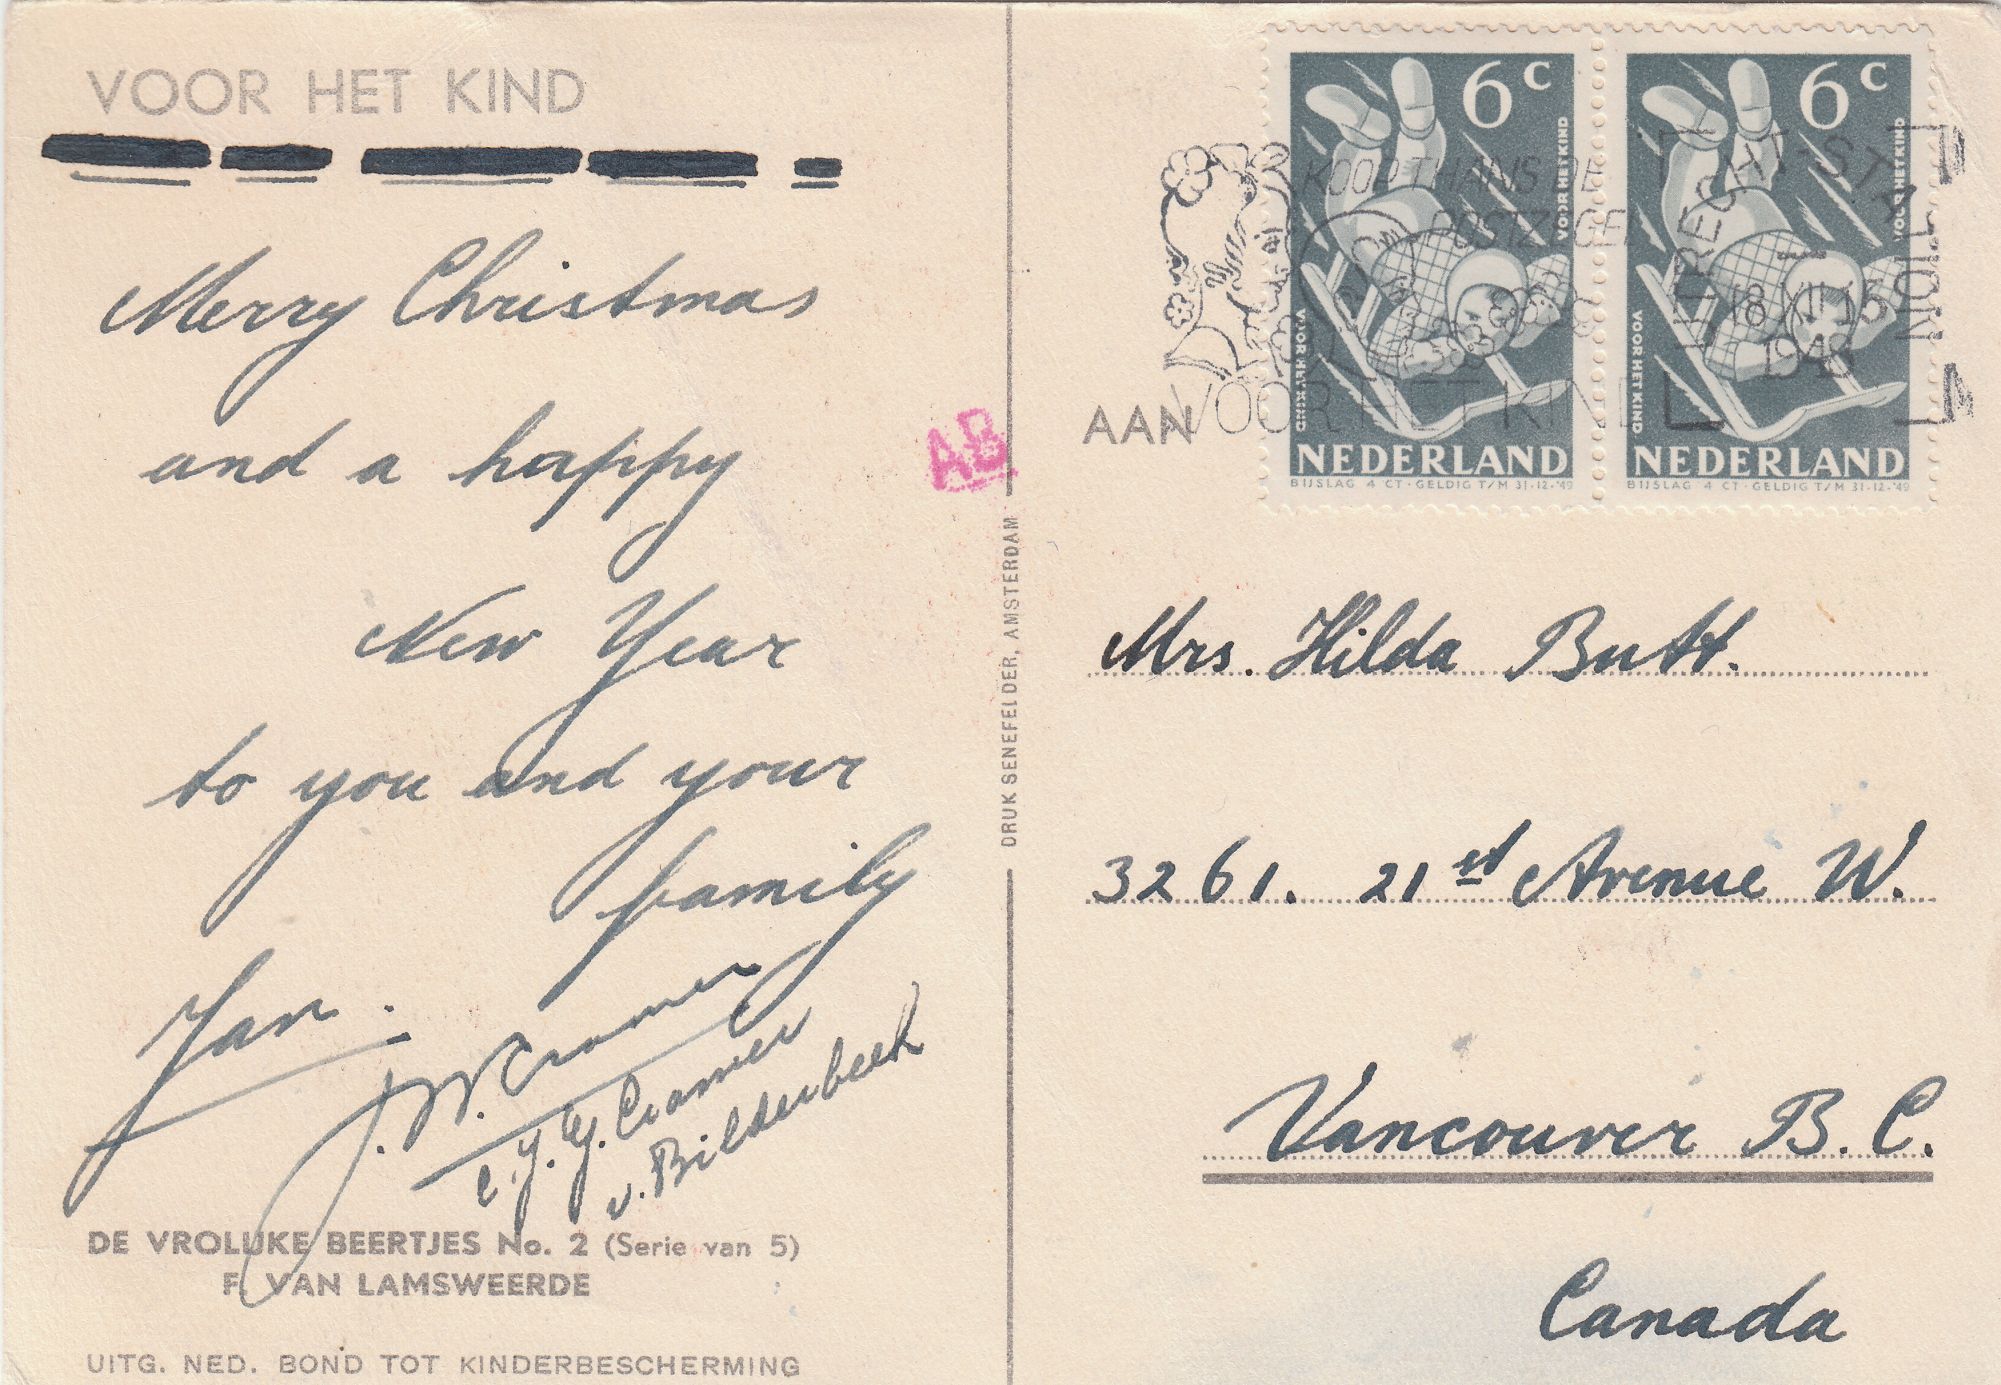 VOOR HET KIND
Merry Christmas
and a happy
New Year
to you and your
family
Jan.
J. W. Cramer
C. J. Y. Cramer
v. Bilderbeek
DE VROLIJKE BEERTJES No. 2 (Serie van 5)
F. VAN LAMSWEERDE
UITG. NED. BOND TOT KINDERBESCHERMING
AB
DRUK SENEFELDER, AMSTERDAM
6 c
VOOR HET KIND
VOOR HET KIND
NEDERLAND
BIJSLAG 4 CT · GELDIG T/M 31-12-'49
6 c
VOOR HET KIND
VOOR HET KIND
NEDERLAND
BIJSLAG 4 CT · GELDIG T/M 31-12-'49
KOOP THANS DE
POSTZEGEL
VOOR HET KIND
UTRECHT-STATION
18 XII
1948
AAN
Mrs. Hilda Butt.
3261. 21st Avenue W.
Vancouver B. C.
Canada